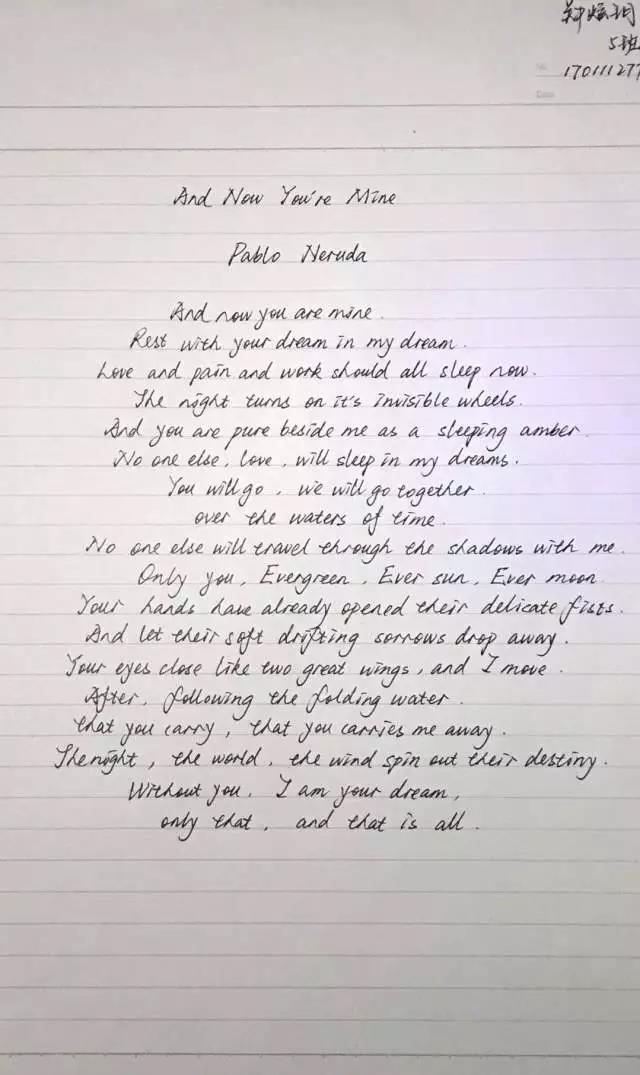 5班
170111277
And Now You're Mine
Pablo Neruda
And now you are mine.
Rest with your dream in my dream.
Love and pain and work should all sleep now.
The night turns on it's invisible wheels.
And you are pure beside me as a sleeping amber.
No one else, love, will sleep in my dreams.
You will go, we will go together.
over the waters of time.
No one else will travel through the shadows with me.
Only you, Evergreen, Ever sun, Ever moon.
Your hands have already opened their delicate fists.
And let their soft drifting sorrows drop away.
Your eyes close like two great wings, and I move.
After, following the folding water.
that you carry, that you carries me away.
The night, the world, the wind spin out their destiny.
Without you, I am your dream,
only that, and that is all.